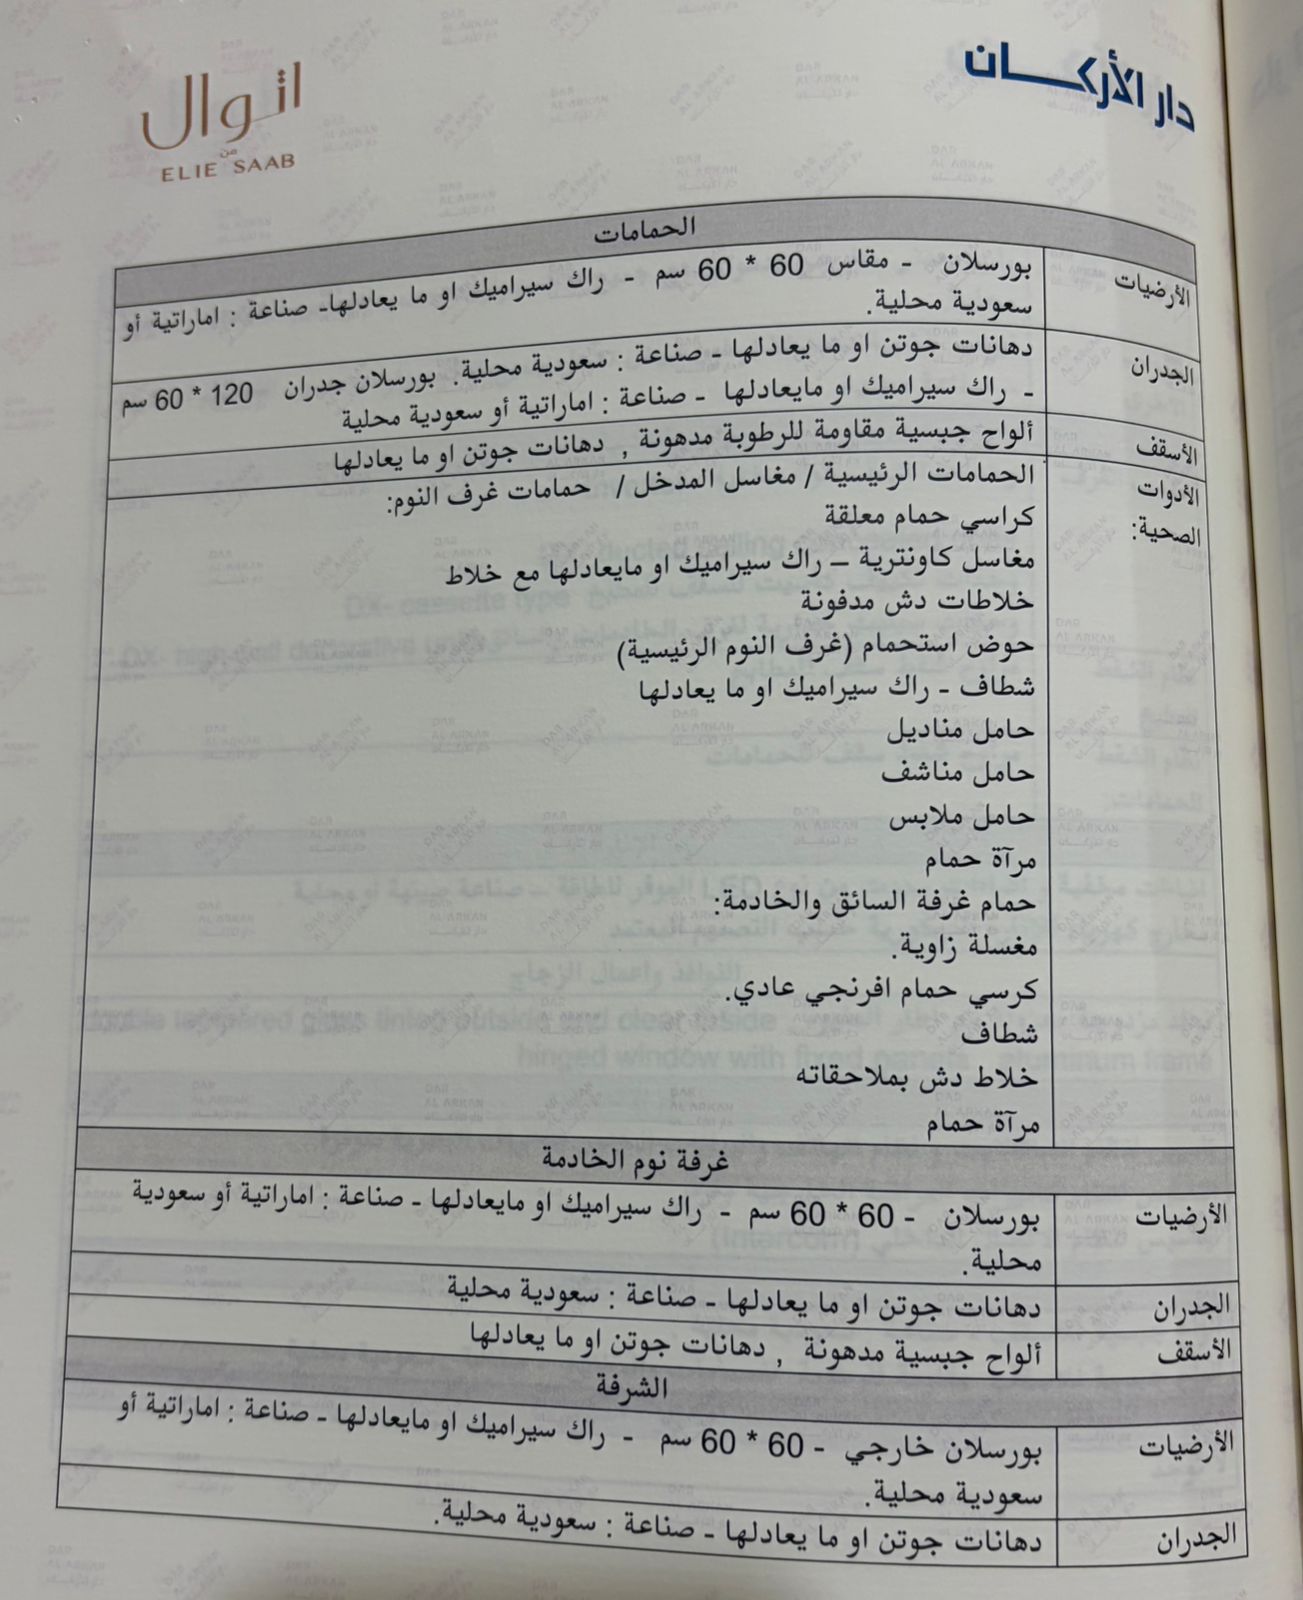 دار الأركان
اتوال
من
ELIE SAAB
الحمامات
الأرضيات
بورسلان - مقاس 60 * 60 سم - راك سيراميك او ما يعادلها- صناعة : اماراتية أو
سعودية محلية.
الجدران
دهانات جوتن او ما يعادلها - صناعة : سعودية محلية. بورسلان جدران 120 * 60 سم
- راك سيراميك او مايعادلها - صناعة : اماراتية أو سعودية محلية
الأسقف
ألواح جبسية مقاومة للرطوبة مدهونة , دهانات جوتن او ما يعادلها
الأدوات
الصحية:
الحمامات الرئيسية / مغاسل المدخل / حمامات غرف النوم:
كراسي حمام معلقة
مغاسل كاونترية – راك سيراميك او مايعادلها مع خلاط
خلاطات دش مدفونة
حوض استحمام (غرف النوم الرئيسية)
شطاف - راك سيراميك او ما يعادلها
حامل مناديل
حامل مناشف
حامل ملابس
مرآة حمام
حمام غرفة السائق والخادمة:
مغسلة زاوية.
كرسي حمام افرنجي عادي.
شطاف
خلاط دش بملاحقاته
مرآة حمام
غرفة نوم الخادمة
الأرضيات
بورسلان - 60 * 60 سم - راك سيراميك او مايعادلها - صناعة : اماراتية أو سعودية
محلية.
الجدران
دهانات جوتن او ما يعادلها - صناعة : سعودية محلية
الأسقف
ألواح جبسية مدهونة , دهانات جوتن او ما يعادلها
الشرفة
الأرضيات
بورسلان خارجي - 60 * 60 سم - راك سيراميك او مايعادلها - صناعة : اماراتية أو
سعودية محلية.
الجدران
دهانات جوتن او ما يعادلها - صناعة : سعودية محلية.